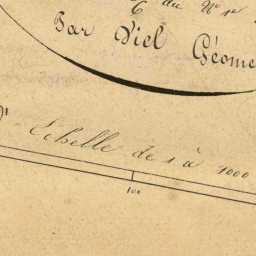 du N° 1er
Par Viel Géome
Echelle de 1 à 1000
100